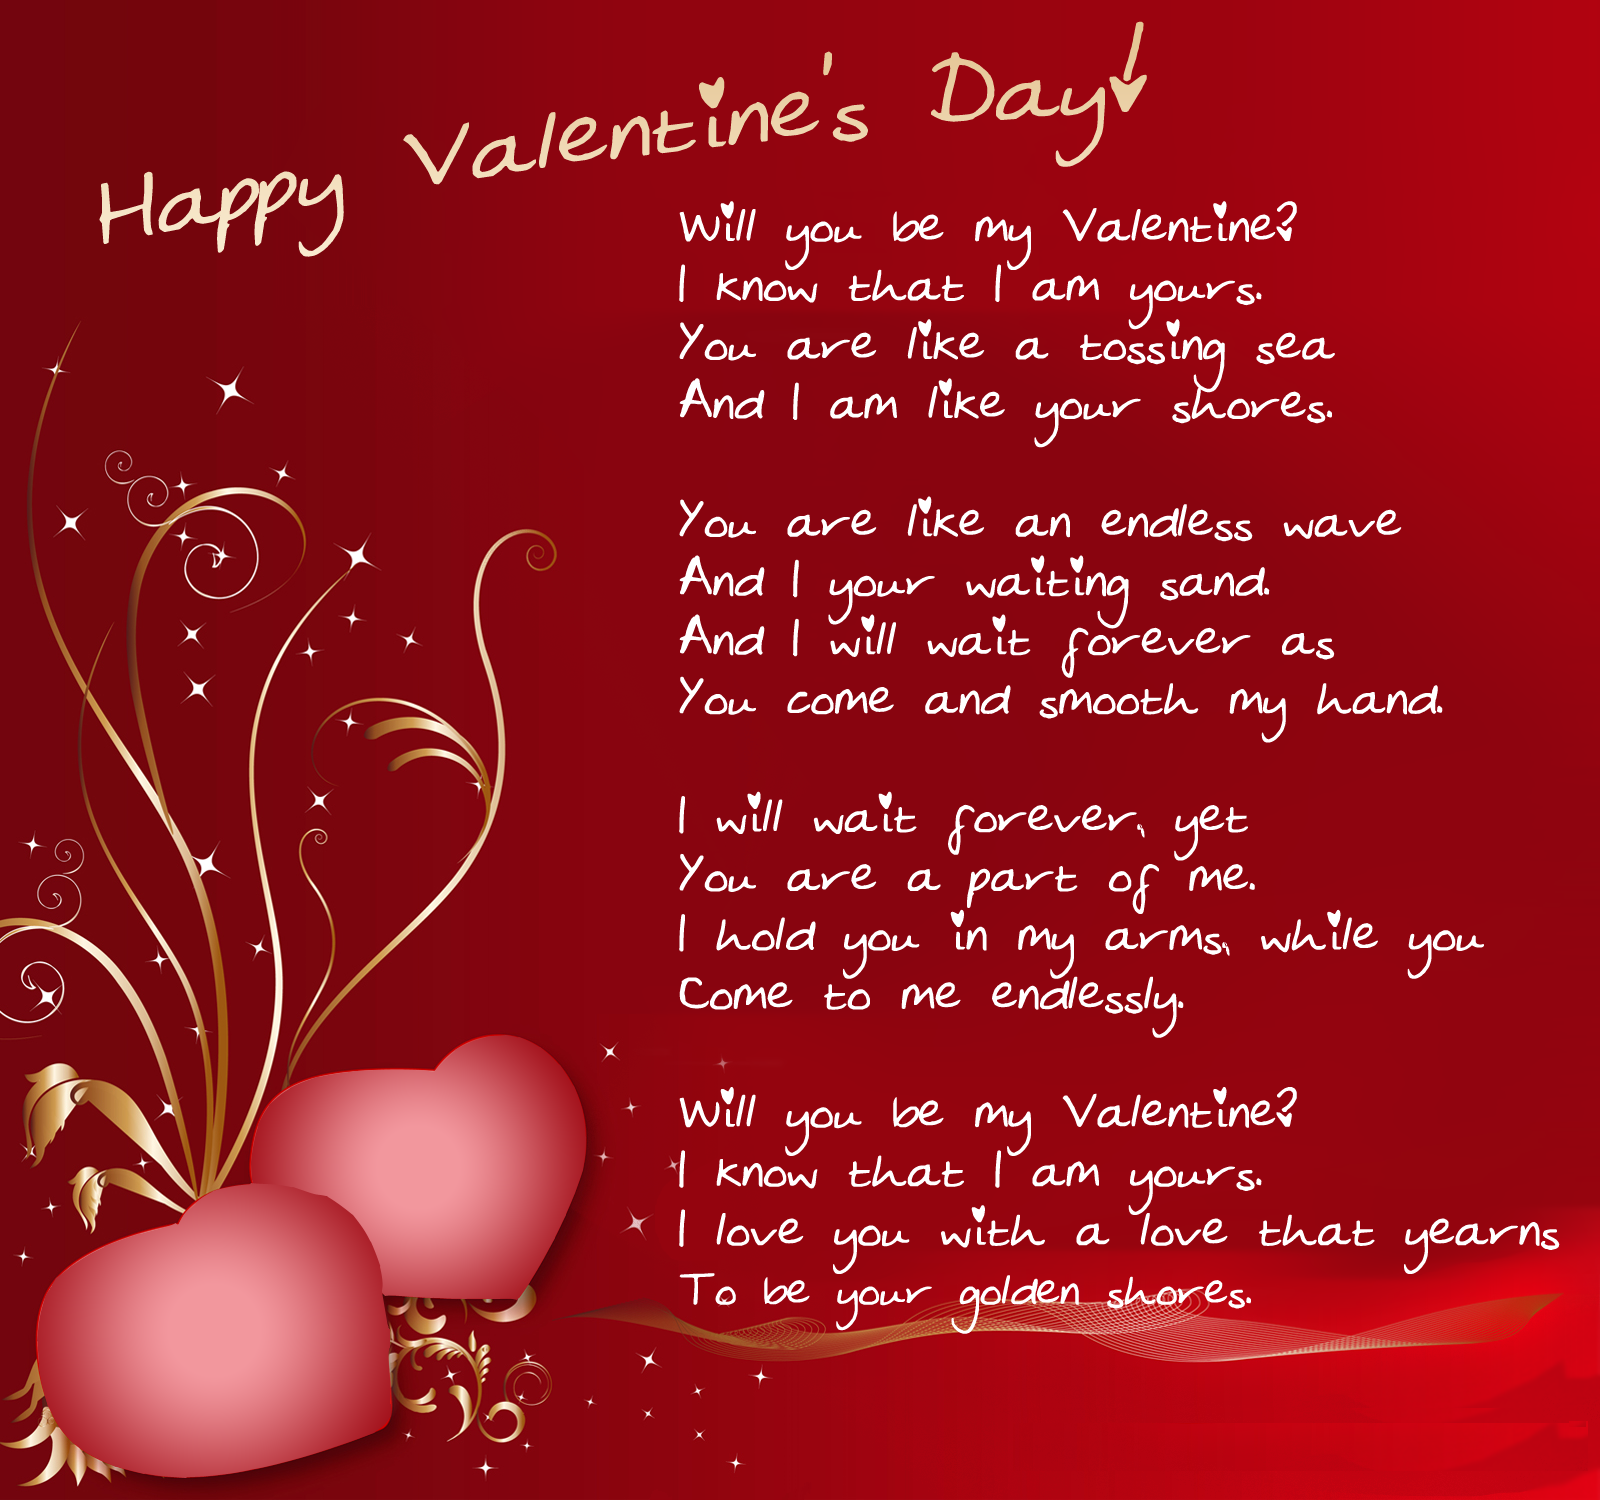 Happy Valentine's Day!
Will you be my Valentine?
I know that I am yours.
You are like a tossing sea
And I am like your shores.
You are like an endless wave
And I your waiting sand.
And I will wait forever as
You come and smooth my hand.
I will wait forever, yet
You are a part of me.
I hold you in my arms, while you
Come to me endlessly.
Will you be my Valentine?
I know that I am yours.
I love you with a love that yearns
To be your golden shores.